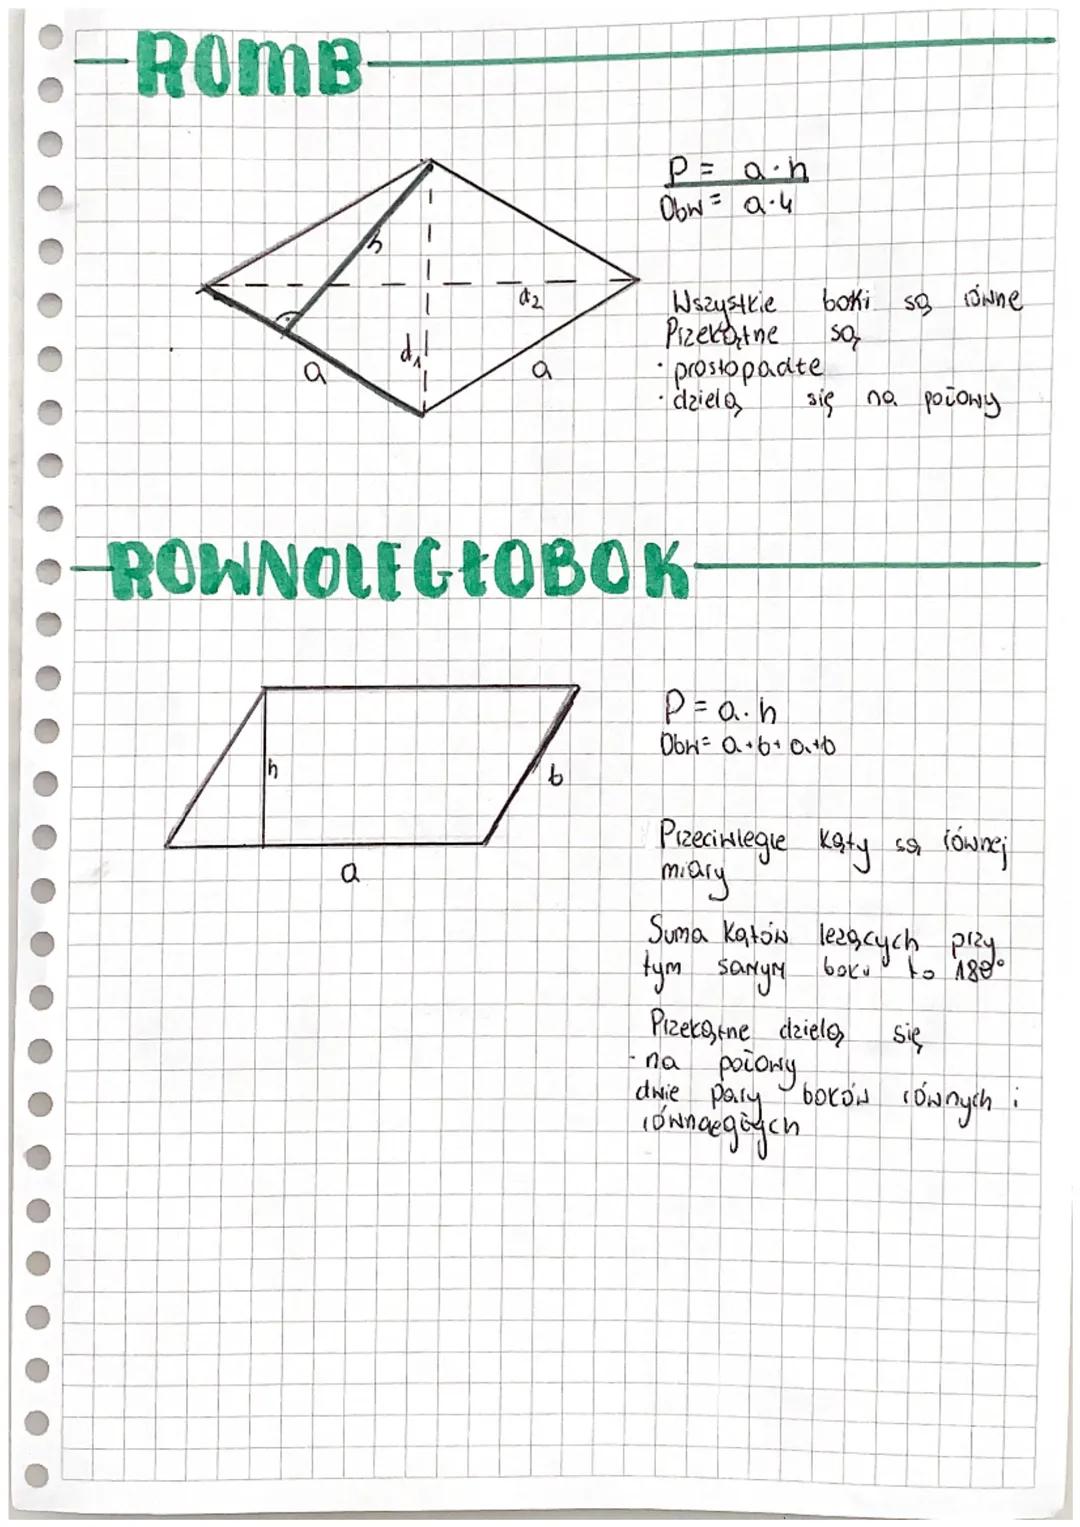 ROMB
P = a·h
Obw = a·4
h
d2
d1
a
a
Wszystkie boki są równe
Przekątne są
· prostopadłe
· dzielą się na połowy
ROWNOLEGŁOBOK
P = a·h
Obw = a+b+a+b
h
b
a
Przeciwległe kąty są równej
miary
Suma kątów leżących przy
tym samym boku to 180°
Przekątne dzielą się
· na połowy
dwie pary boków równych i